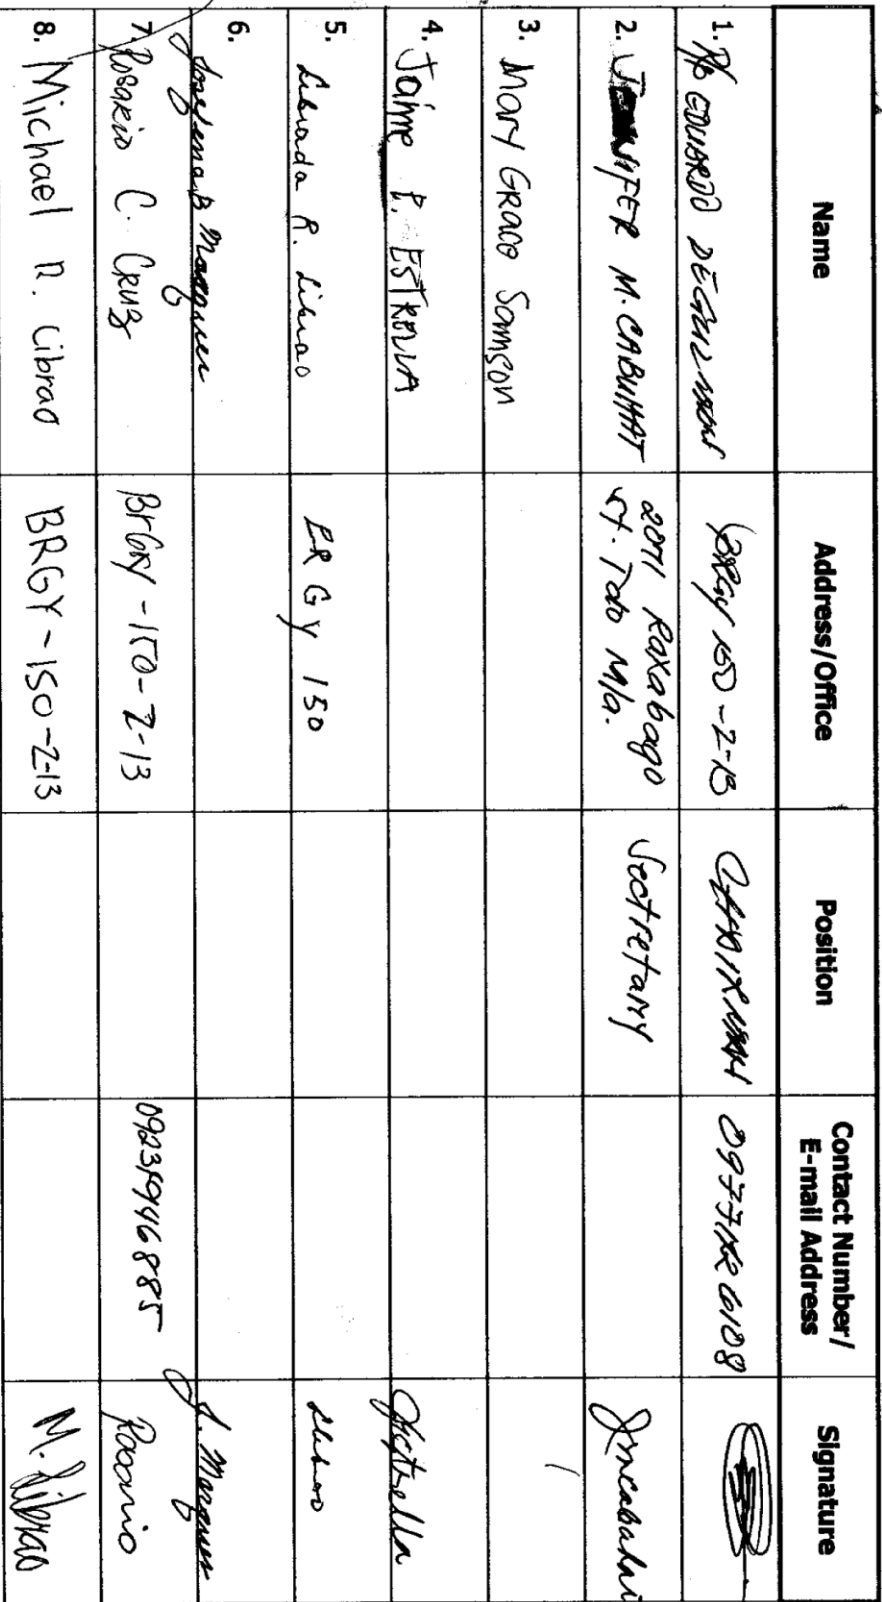 Name Address/Office Position Contact Number/ E-mail Address Signature
1. P/B EDUARDO DEGUZMAN BRGY 150-Z-13 CHAIRMAN
2. JENNIFER M. CABUHAT 2071 Raxabago Sectretary
st. Tdo M/a.
3. Mary Grace Samson
4. Jaime P. ESTRELLA
5. Librada R. Librao BRGy 150 Librao
6. B Marquez J. Marquez
7. Rosario C. Cruz BrGy-150-Z-13 Rosario
8. Michael R. Librao BRGY-150-Z-13 M. Librao